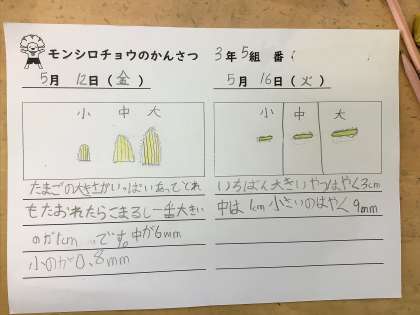 モンシロチョウのかんさつ 3年5組 番
5月 12日(金)
小 中 大
たまごの大きさがいっぱいあってどれ
もたおれたらこまるし一番大きい
のが1cm です。中が6mm
小のが0.8mm
5月 16日(火)
小 中 大
いちばん大きいやつはやく3cm
中は1cm小さいのはやく9mm